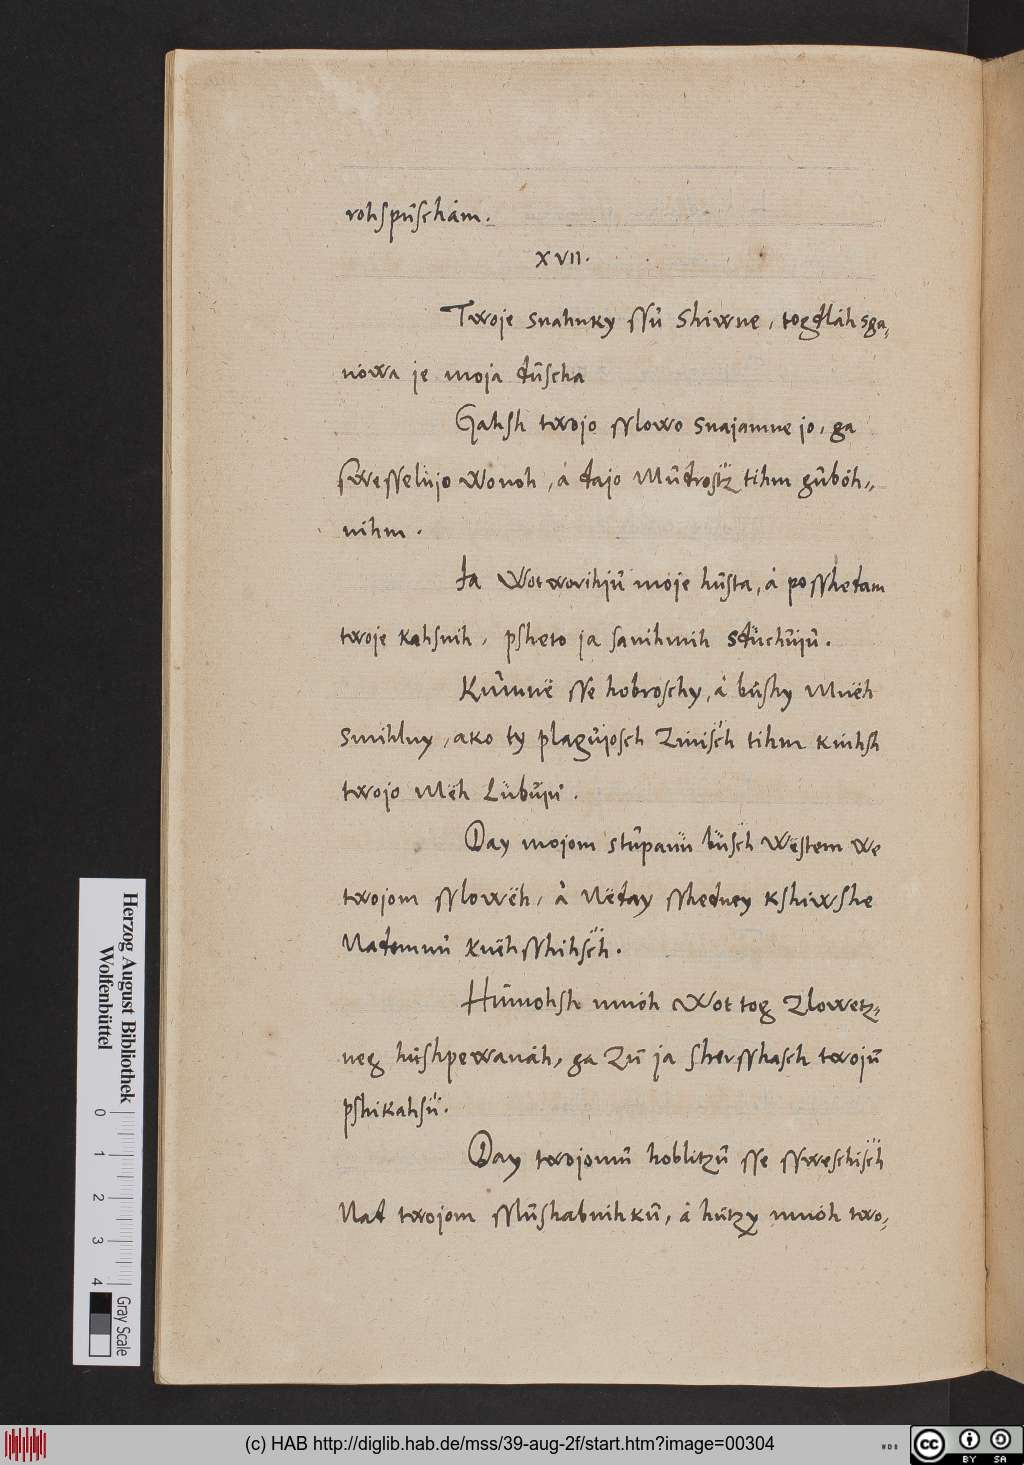 rohspůschám.
XVII.
Twoje snahnky ssů Shiwne, togdláh sga-
nówa je moja důscha
Gahsh twojo sslowo snajamne jo, ga
swesselüjo wonoh, á dajo Můdrostz tihm gůbóh-
nihm.
Ja Wotworihjů moje hůsta, á posshedam
twoje kahsnih, psheto ja sanihmih sdüchůjů.
Kůmnë sse hobroschy, á bůshy Mnëh
smihlny, ako ty plagůjosch Zinisch tihm kinhsh
twojo Mëh Lübůjů.
Day mojom stůpanü büsch Wëstem we
twojom sslowëh, å Nëday sshedney kshiwshe
Nademnů knëhsshihsch.
Hůmohsh mnóh Wot tog Zlowetz-
neg hůshpewanáh, ga Zů ja shersshasch twojů
pshikahsü.
Day twojomů hoblitzů sse ssweschisch
Nad twojom sslůshabnihků, á hůtzy mnóh two-
Herzog August Bibliothek
Wolfenbüttel
0 1 2 3 4
Gray Scale
(c) HAB http://diglib.hab.de/mss/39-aug-2f/start.htm?image=00304
WDB
cc BY SA